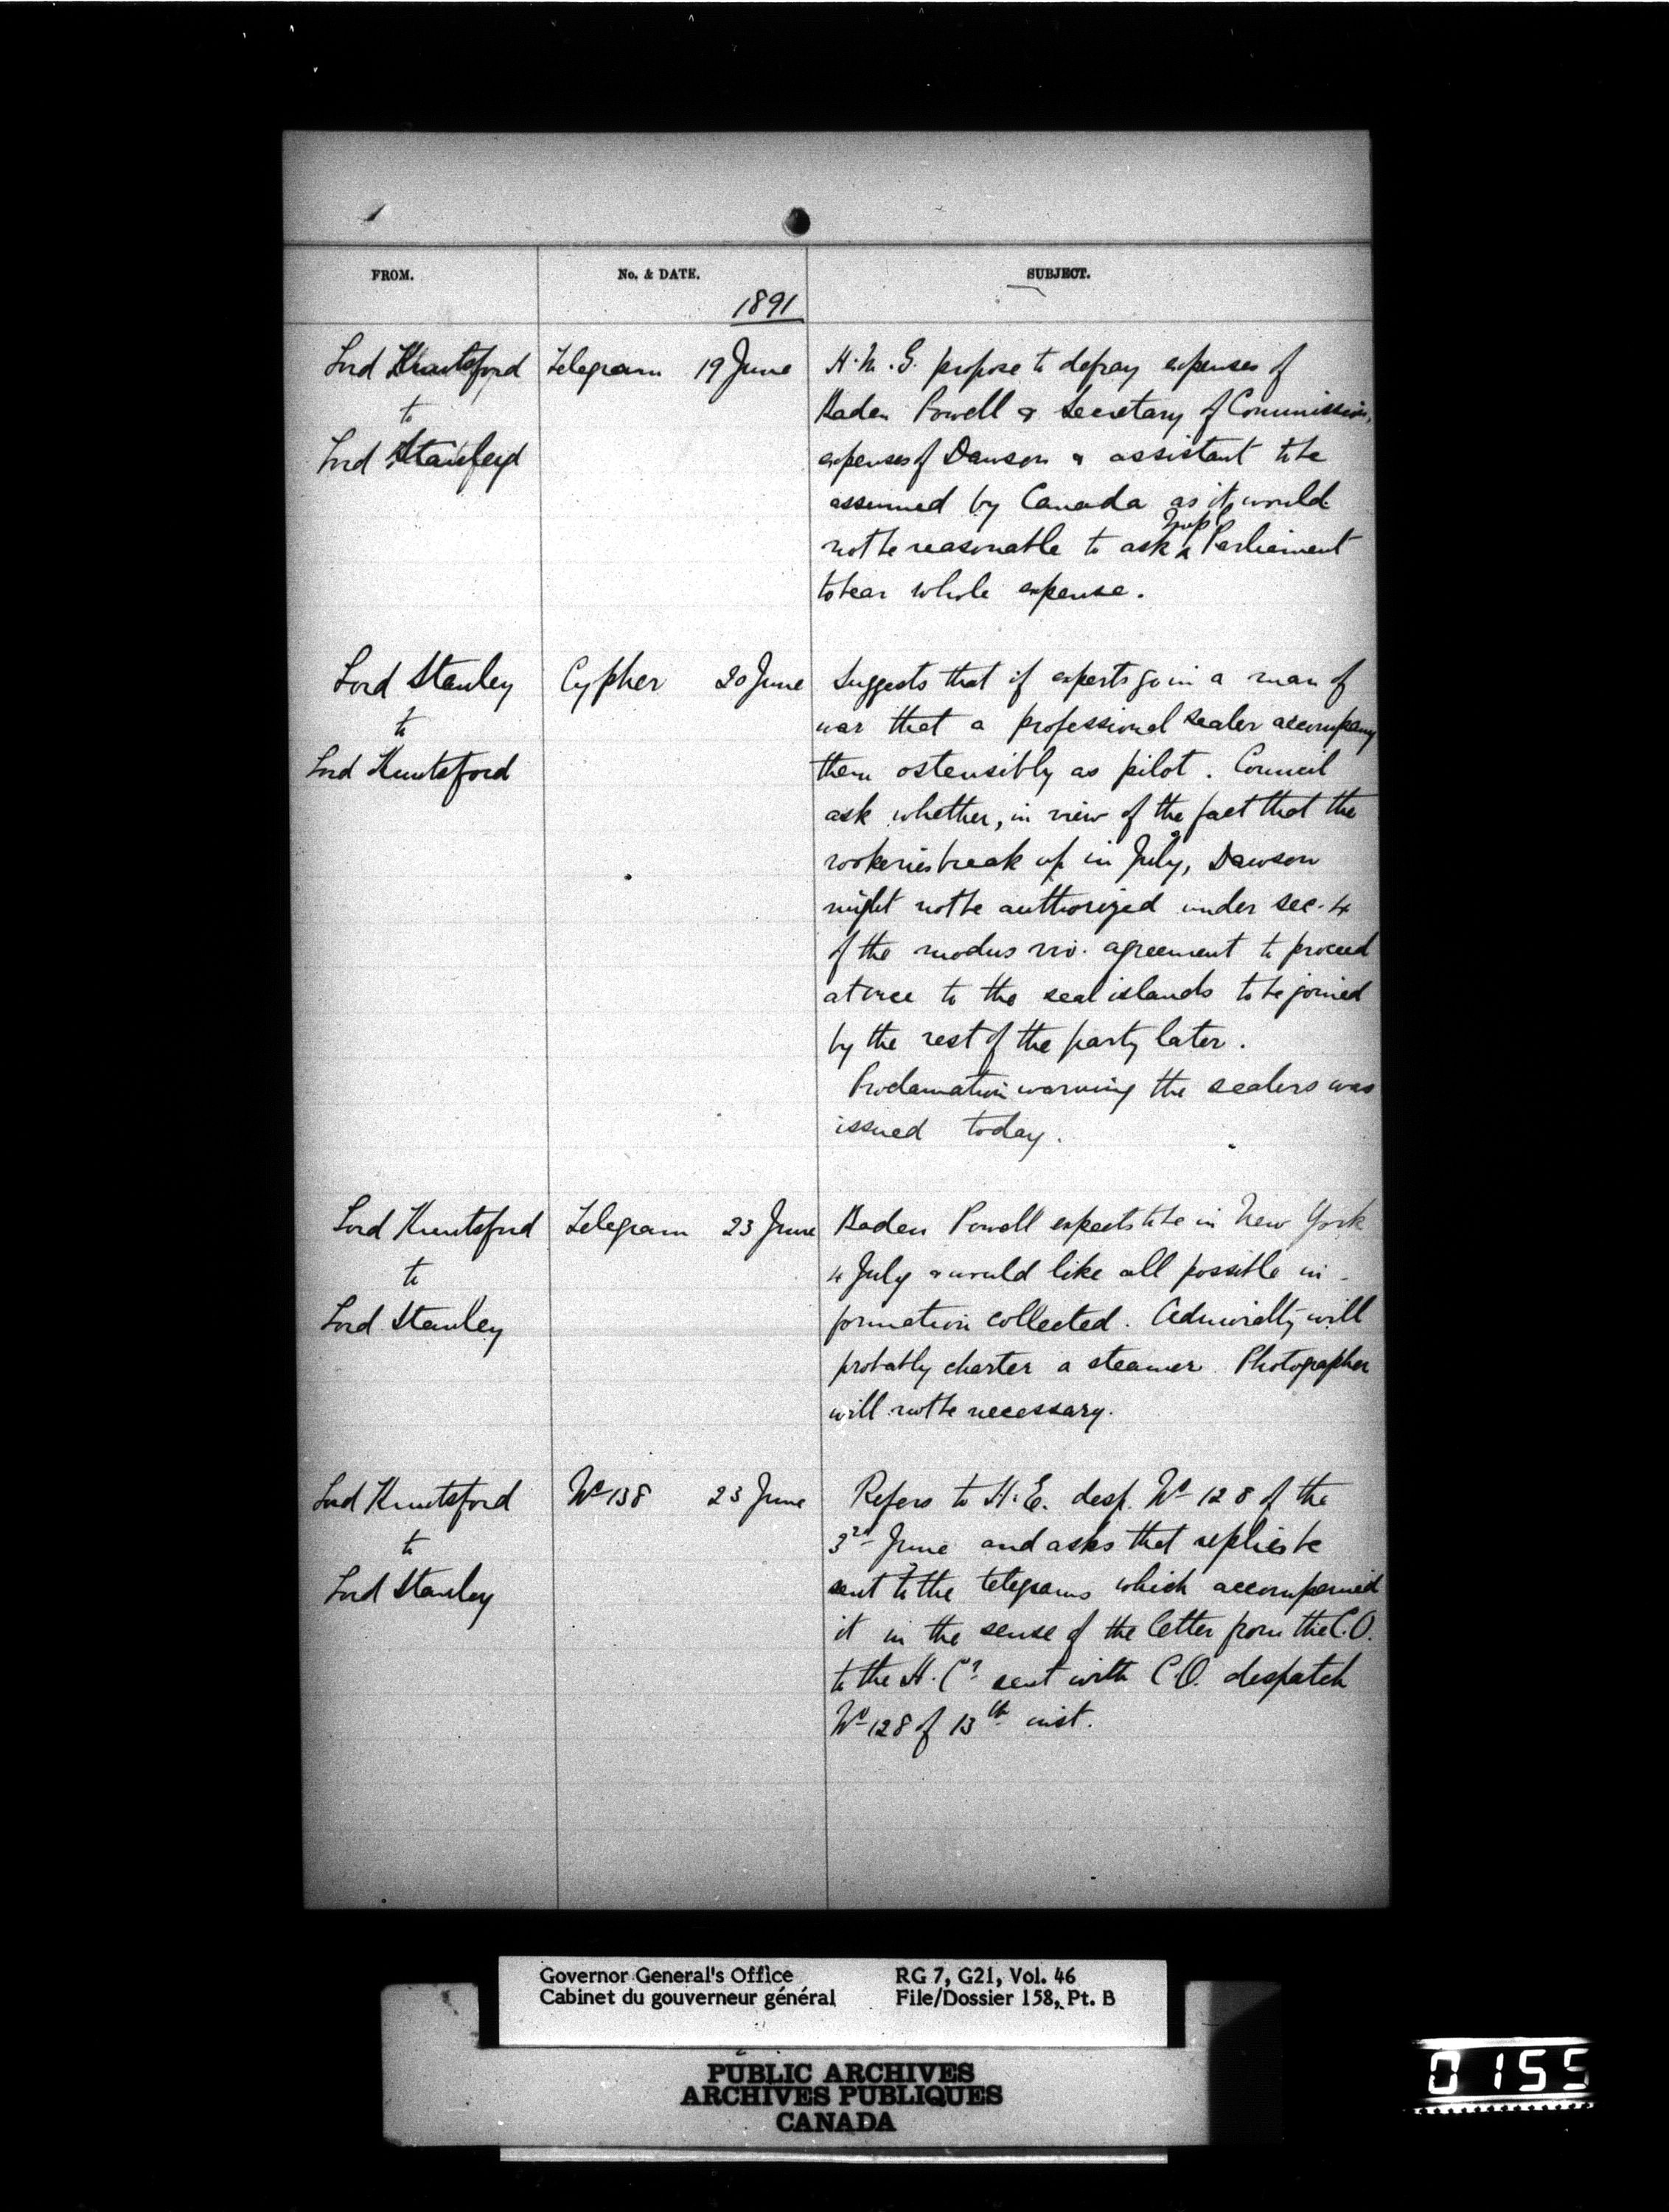 FROM.
No. & DATE.
SUBJECT.
1891
Lord Knutsford
to
Lord Stanley
Telegram 19 June
H.M.G. propose to defray expenses of
Baden Powell & Secretary of Commission,
expenses of Dawson & assistant to be
assumed by Canada as it would
not be reasonable to ask Imp^l Parliament
to bear whole expense.
Lord Stanley
to
Lord Knutsford
Cypher 20 June
Suggests that if experts go in a man of
war that a professional sealer accompany
them ostensibly as pilot. Council
ask whether, in view of the fact that the
rookeries break up in July, Dawson
might not be authorized under sec. 4
of the modus viv. agreement to proceed
at once to the seal islands to be joined
by the rest of the party later.
Proclamation warning the sealers was
issued today.
Lord Knutsford
to
Lord Stanley
Telegram 23 June
Baden Powell expects to be in New York
4 July & would like all possible in-
formation collected. Admiralty will
probably charter a steamer. Photographer
will not be necessary.
Lord Knutsford
to
Lord Stanley
No 138 23 June
Refers to H.E. desp. No 128 of the
3rd June and asks that replies be
sent to the telegrams which accompanied
it in the sense of the letter from the C.O.
to the H. Cr. sent with C.O. despatch
No 128 of 13th inst.
Governor General's Office
Cabinet du gouverneur général
RG 7, G21, Vol. 46
File/Dossier 158, Pt. B
PUBLIC ARCHIVES
ARCHIVES PUBLIQUES
CANADA
0155